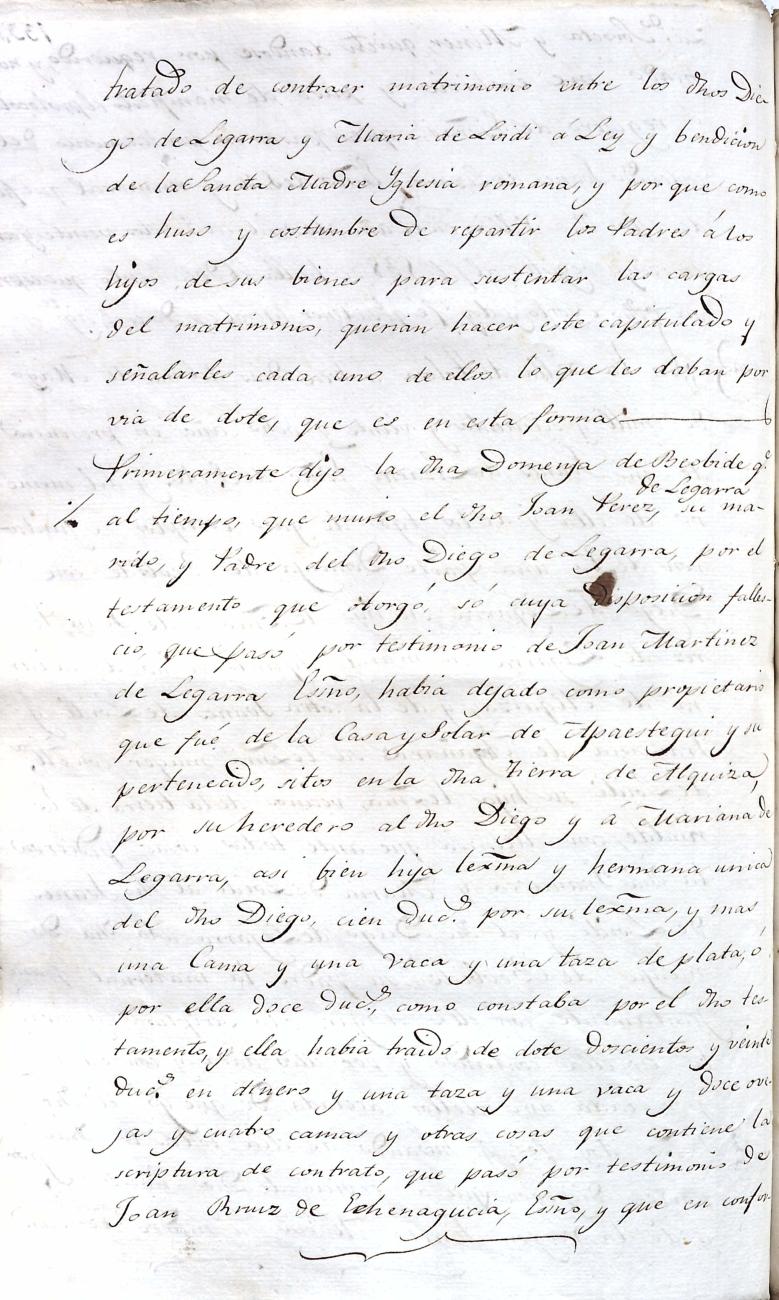 tratado de contraer matrimonio entre los dhos Die-
go de Legarra y Maria de Loidi a Ley y bendicion
de la Sancta Madre Yglesia romana, y por que como
es huso y costumbre de repartir los Padres á los
hijos de sus bienes para sustentar las cargas
del matrimonio, querian hacer este capitulado y
señalarles cada uno de ellos lo que les daban por
via de dote, que es en esta forma
Primeramente dijo la dha Domenja de Beobide q.e
de Legarra
al tiempo, que murio el dho Joan Perez, su ma-
rido, y Padre del dho Diego de Legarra, por el
testamento que otorgó, só cuya disposicion falles-
cio, que pasó por testimonio de Joan Martinez
de Legarra Essno, habia dejado como propietario
que fué de la Casa y Solar de Apaestegui y su
pertenecido, sitos en la dha tierra de Alquiza,
por su heredero al dho Diego y á Mariana de
Legarra, asi bien hija lexma y hermana unica
del dho Diego, cien duc.s por su lexma, y mas
una Cama y una vaca y una taza de plata, ó
por ella doce duc.s, como constaba por el dho tes-
tamento, y ella habia traido de dote doscientos y veinte
duc.s en dinero y una taza y una vaca y doce ove-
jas y cuatro camas y otras cosas que contiene la
scriptura de contrato, que pasó por testimonio de
Joan Rruiz de Echenagucia, Essno, y que en confor-